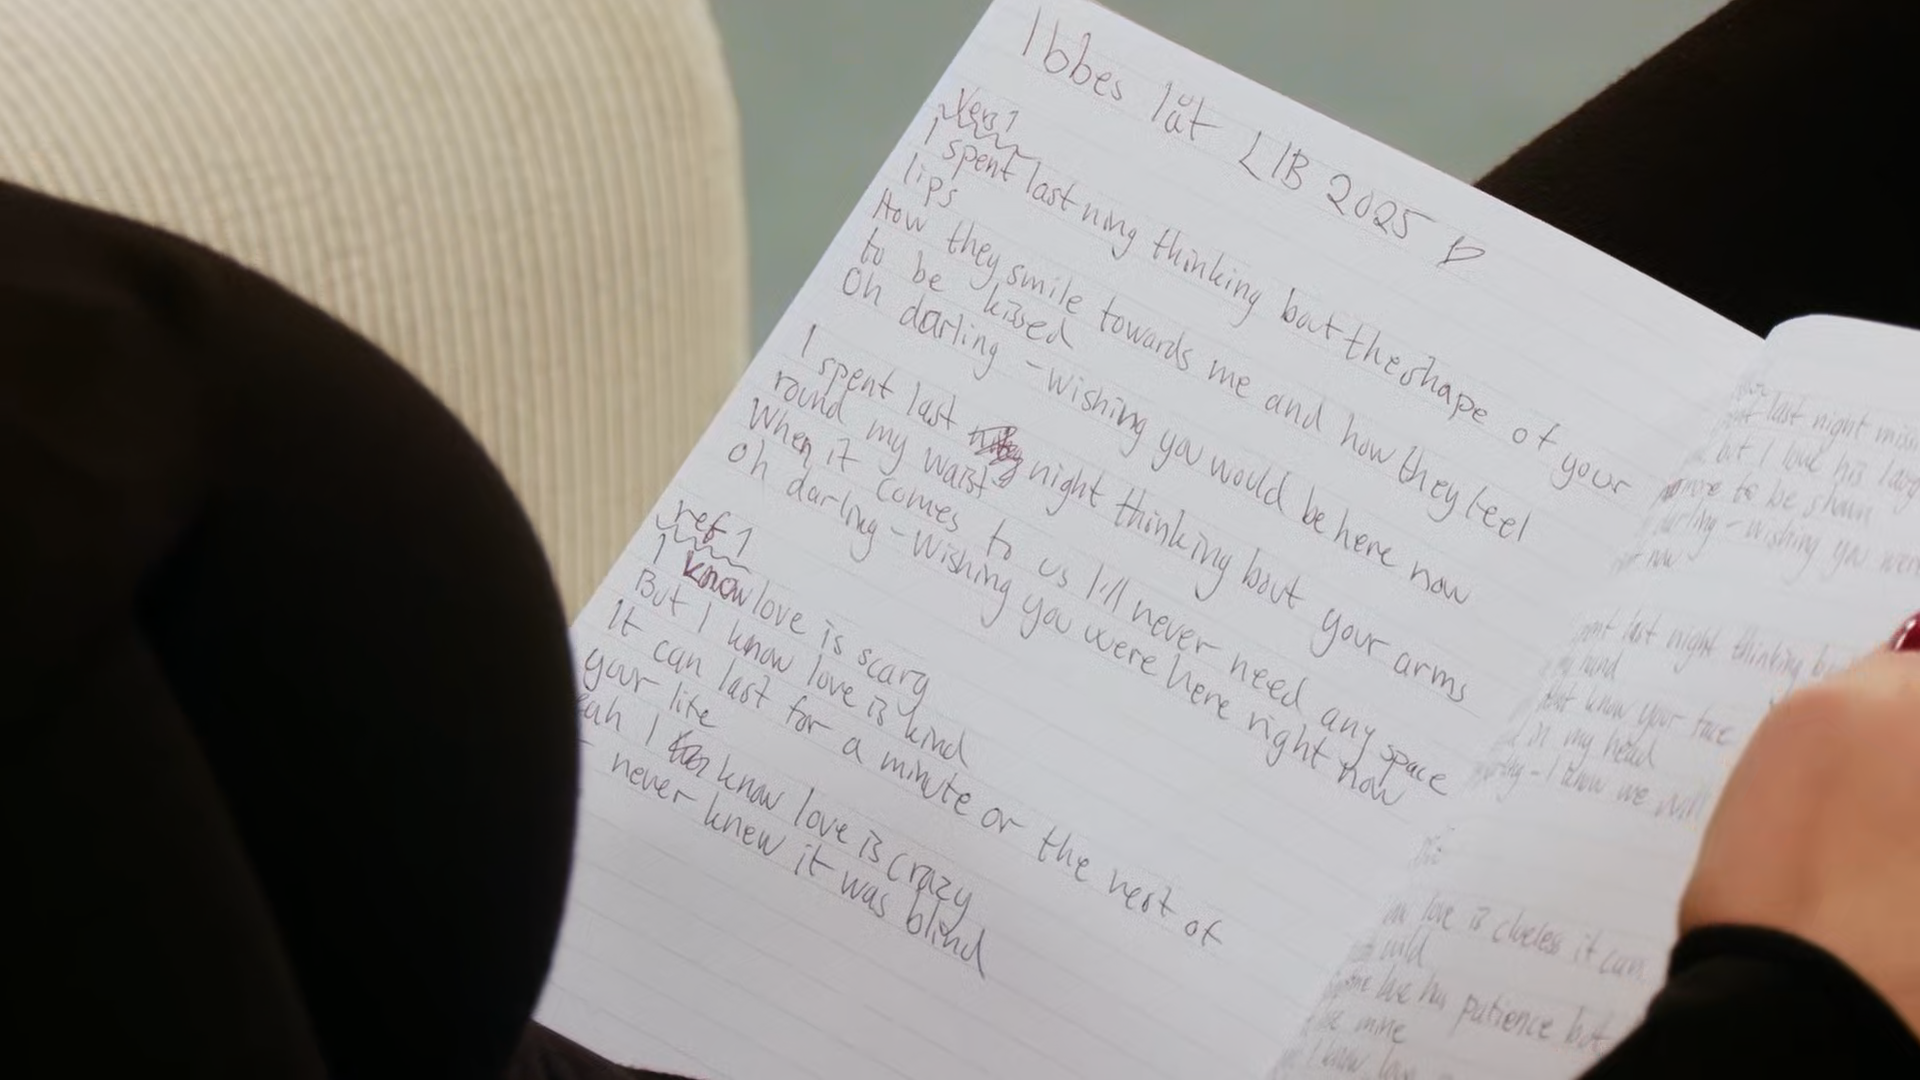 Ibbes låt LIB 2025
Vers 1
I spent last ning thinking bout the shape of your
lips
How they smile towards me and how they feel
to be kissed
Oh darling - wishing you would be here now
I spent last night thinking bout your arms
round my waist
When it comes to us I'll never need any space
Oh darling - Wishing you were here right now
ref 1
I know love is scary
But I know love is kind
It can last for a minute or the rest of
your life
I know love is crazy
never knew it was blind
last night
but I love his
to be
darling - wishing you were
now
last night thinking
my hand
know your face
in my head
I know we will
love is clueless it can
wild
patience but
be mine
I know love